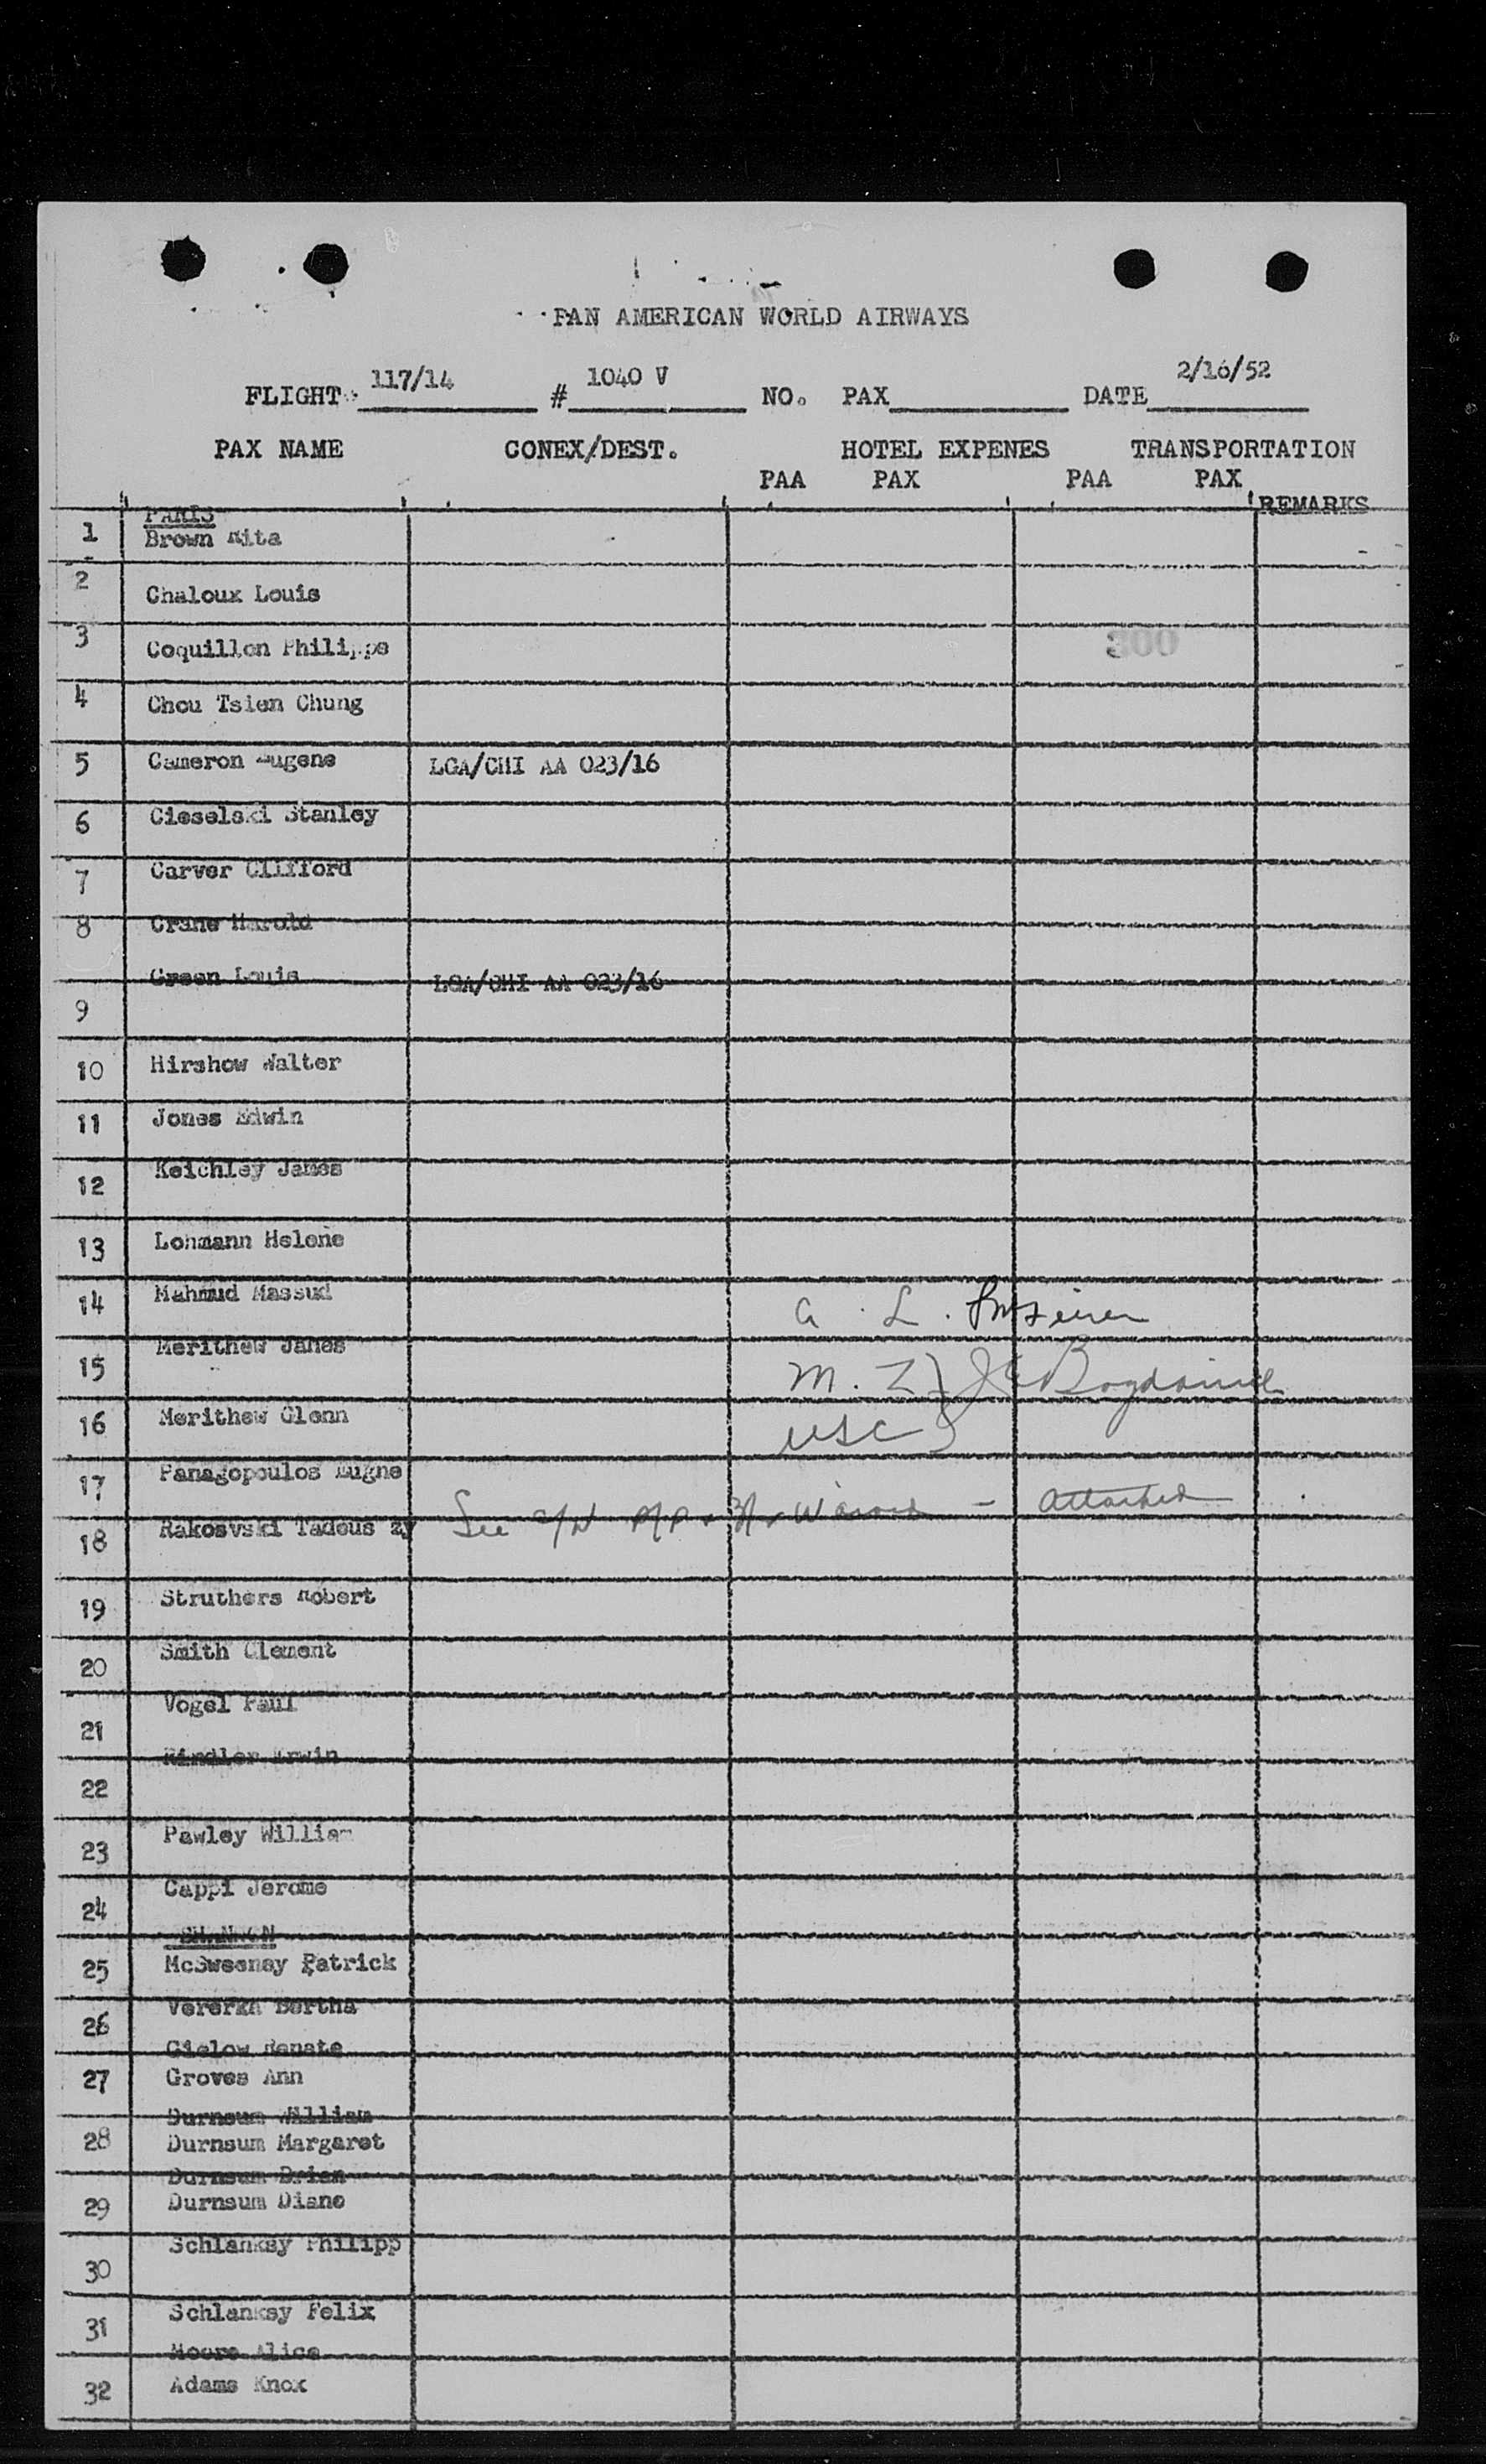 PAN AMERICAN WORLD AIRWAYS
FLIGHT 117/14 # 1040 V NO. PAX DATE 2/16/52
PAX NAME CONEX/DEST. HOTEL EXPENES TRANSPORTATION
PAA PAX PAA PAX REMARKS
PARIS
1 Brown Rita
2 Chaloux Louis
3 Coquillon Philippe 300
4 Chou Tsien Chung
5 Cameron Eugene LGA/CHI AA 023/16
6 Cieselski Stanley
7 Carver Clifford
8 Crane Harold
Green Louis LGA/CHI AA 023/16
9
10 Hirshow Walter
11 Jones Edwin
12 Keichley James
13 Lohmann Helene
14 Mahmud Massud G. L.
15 Merithew James M.
16 Merithew Glenn USC
17 Panagopoulos Eugne
18 Rakosvski Tadeus zy See Attached
19 Struthers Robert
20 Smith Clement
Vogel Paul
21
Kindler Erwin
22
23 Pawley William
24 Cappi Jerome
SHANNON
25 McSweenay Patrick
26 Vererka Bertha
Gielow Renate
27 Groves Ann
Durnsum William
28 Durnsum Margaret
Durnsum Brian
29 Durnsum Diane
30 Schlanksy Philipp
31 Schlanksy Felix
Moore Alice
32 Adams Knox